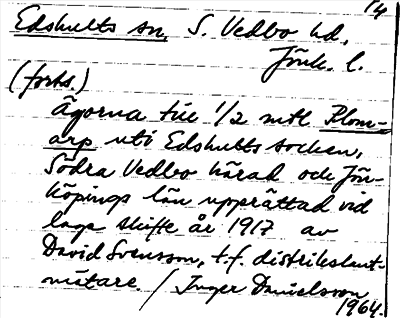 14
Edshults sn, S. Vedbo hd,
Jönk. l.
(forts.)
Ägorna till 1/2 mtl Plom-
arp uti Edshults socken,
Södra Vedbo härad och Jön-
köpings län upprättad vid
laga skifte år 1917 av
David Svensson, t.f. distriktslant-
mätare. / Inger Danielsson
1964.